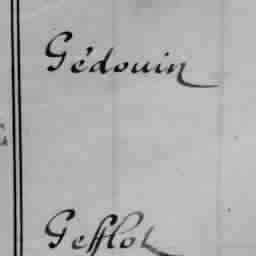 Gédouin
Gefflot